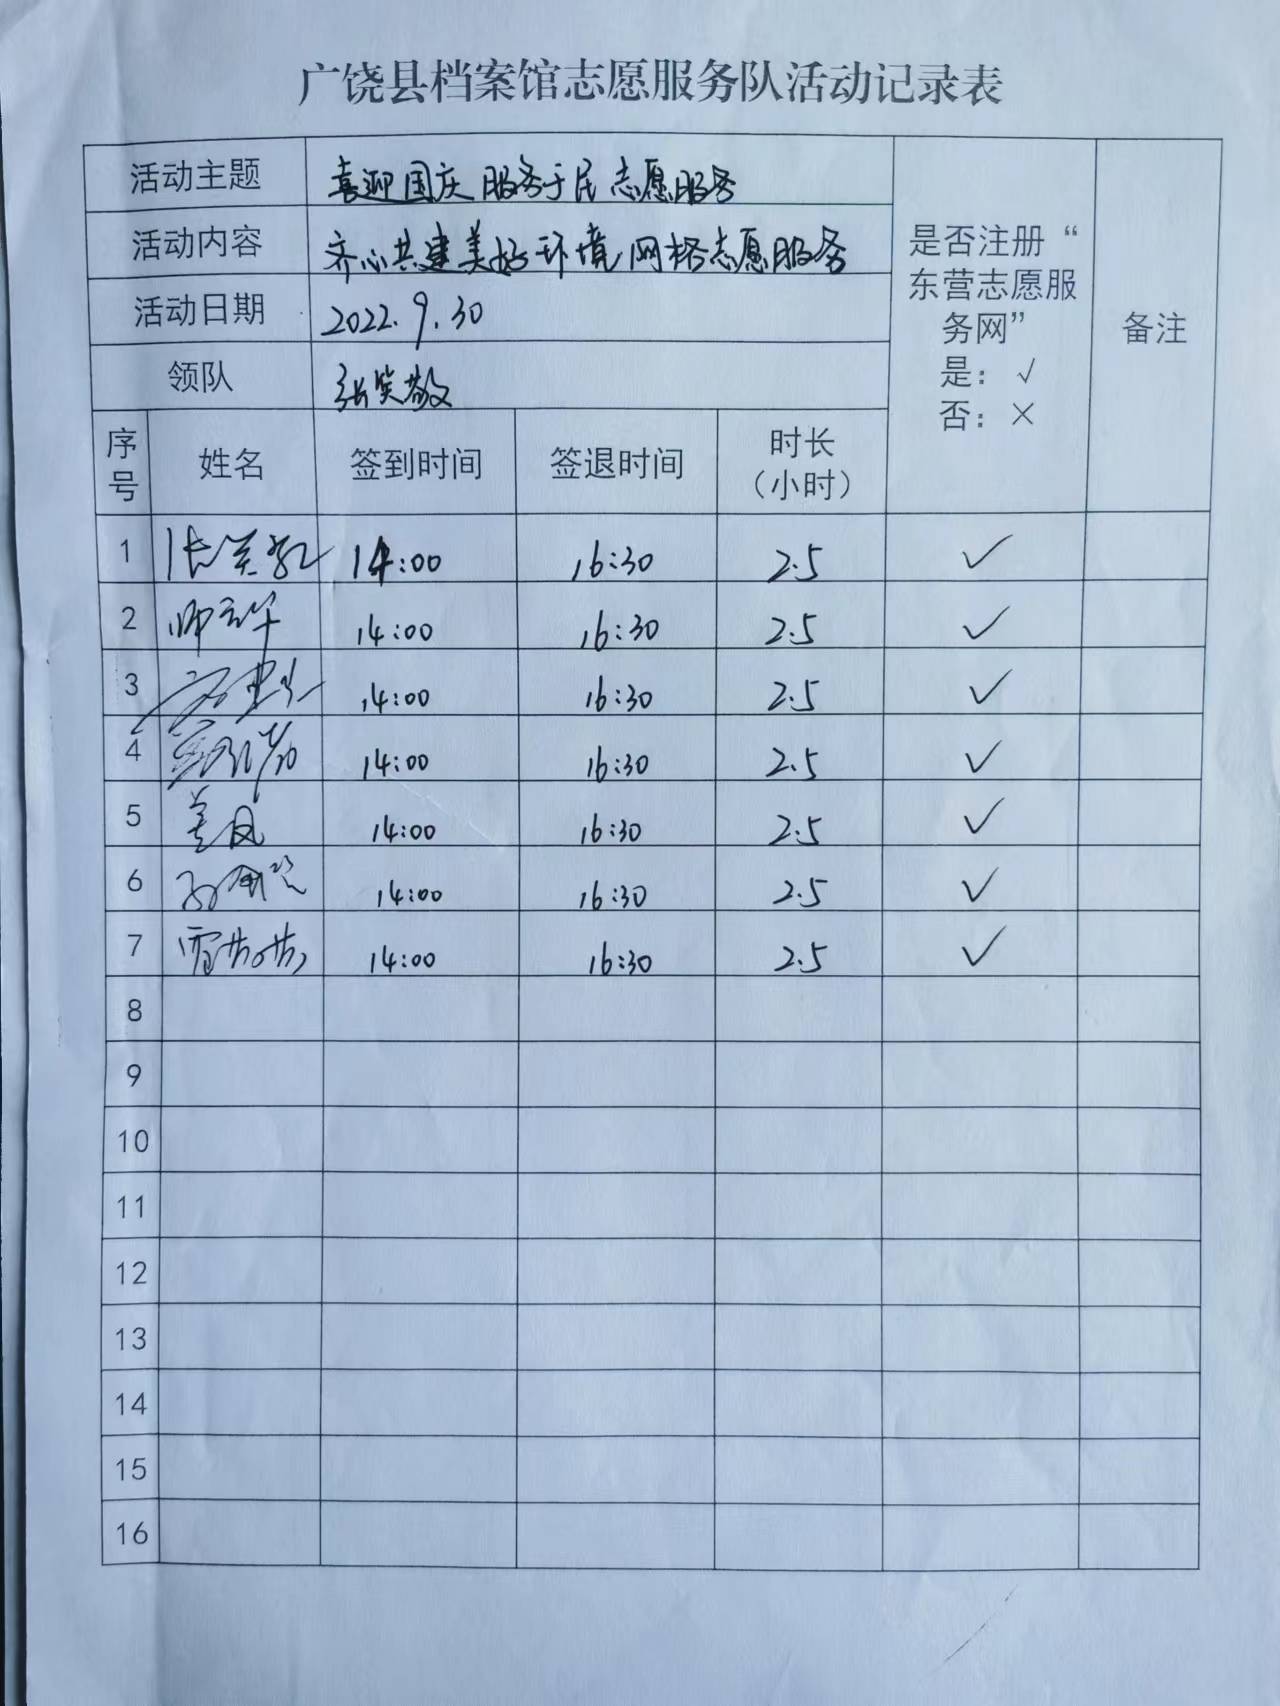 广饶县档案馆志愿服务队活动记录表
活动主题 喜迎国庆 服务于民 志愿服务
活动内容 齐心共建美好环境 网格志愿服务
活动日期 2022.9.30
领队 张笑敬
是否注册“
东营志愿服
务网”
是：√
否：×
备注
序号 姓名 签到时间 签退时间 时长（小时）
1 张笑敬 14:00 16:30 2.5 ✓
2 14:00 16:30 2.5 ✓
3 14:00 16:30 2.5 ✓
4 14:00 16:30 2.5 ✓
5 14:00 16:30 2.5 ✓
6 14:00 16:30 2.5 ✓
7 14:00 16:30 2.5 ✓
8
9
10
11
12
13
14
15
16